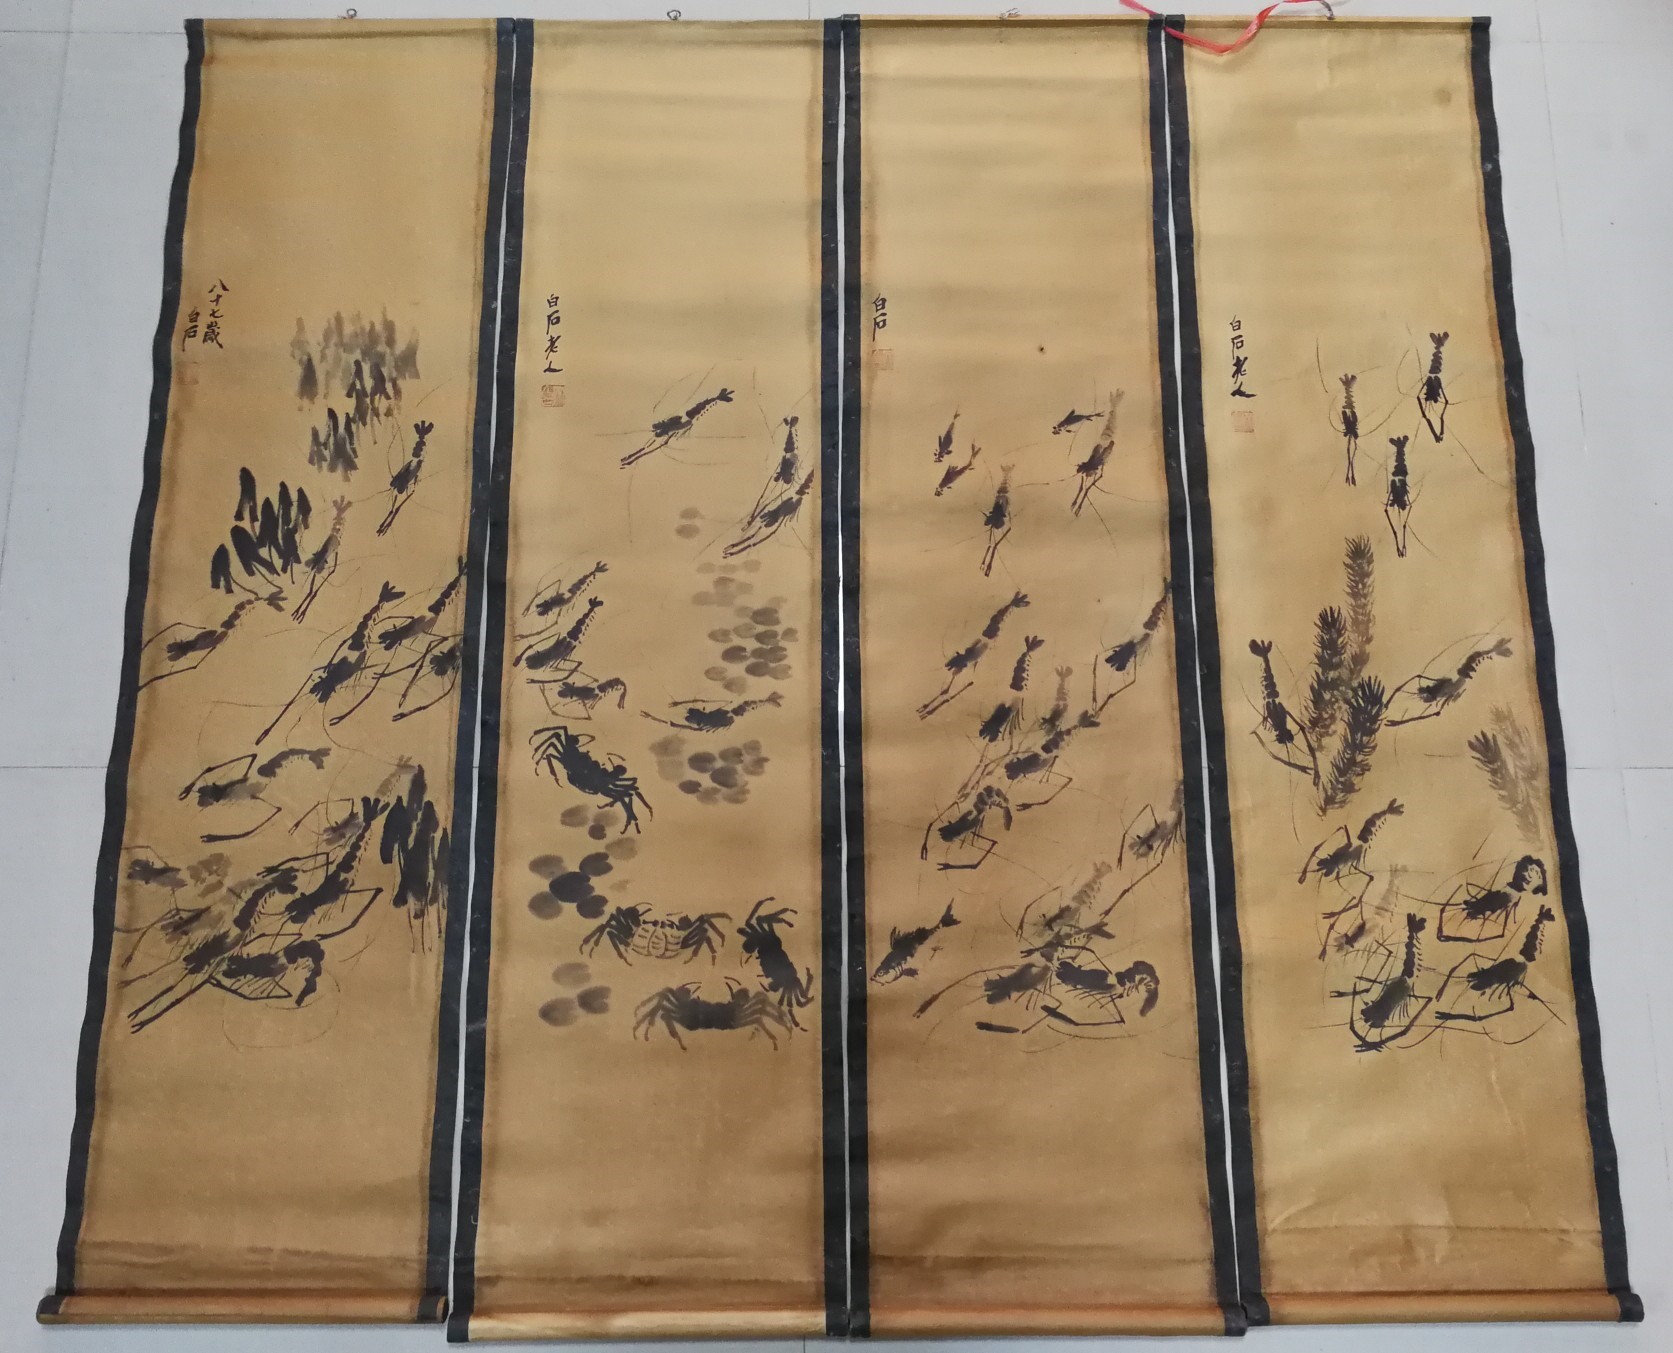 八十七歲
白石
白石老人
白石
白石老人